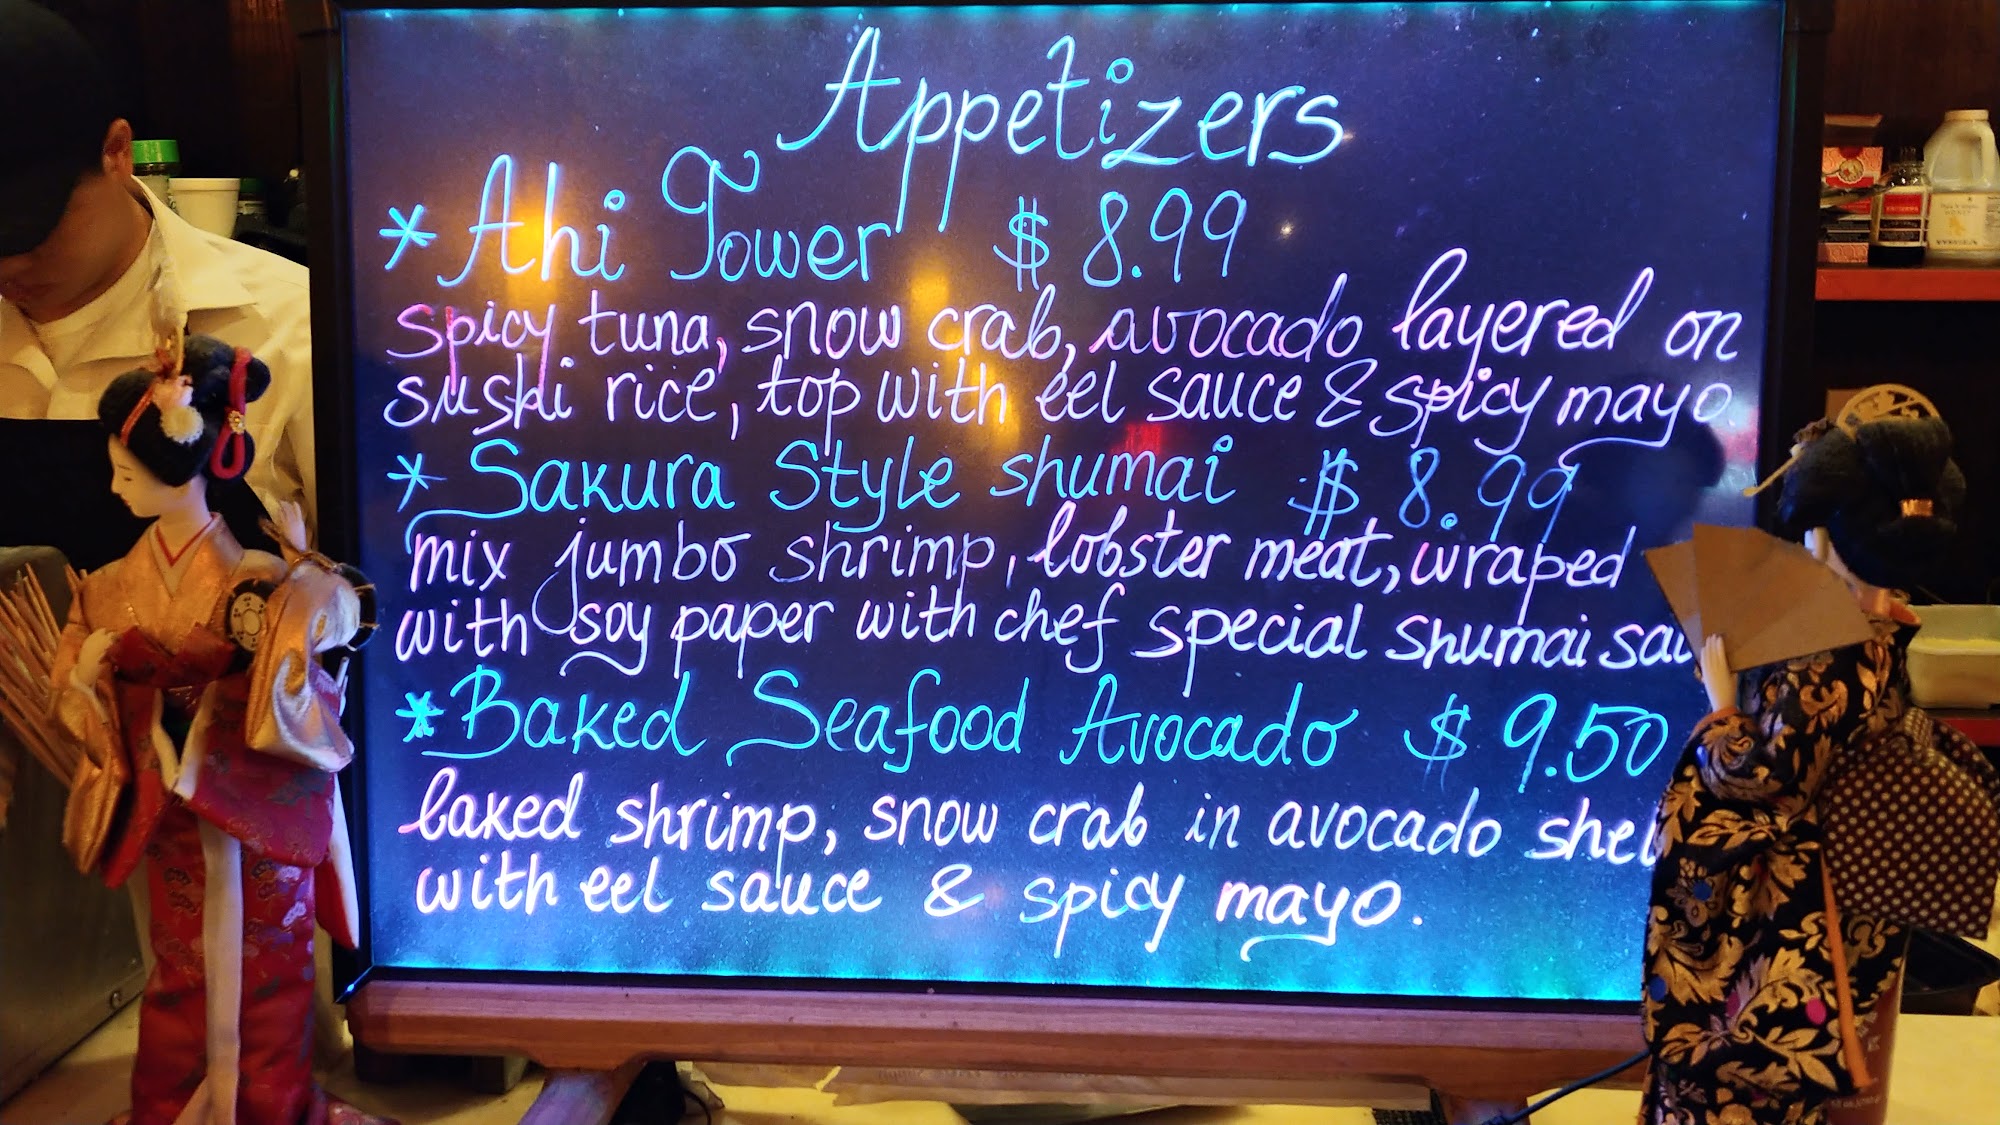 Appetizers
* Ahi Tower $ 8.99
spicy tuna, snow crab, avocado layered on
sushi rice, top with eel sauce & spicy mayo.
* Sakura Style shumai $ 8.99
mix jumbo shrimp, lobster meat, wraped
with soy paper with chef special shumai
* Baked Seafood Avocado $ 9.50
baked shrimp, snow crab in avocado
with eel sauce & spicy mayo.
HONEY